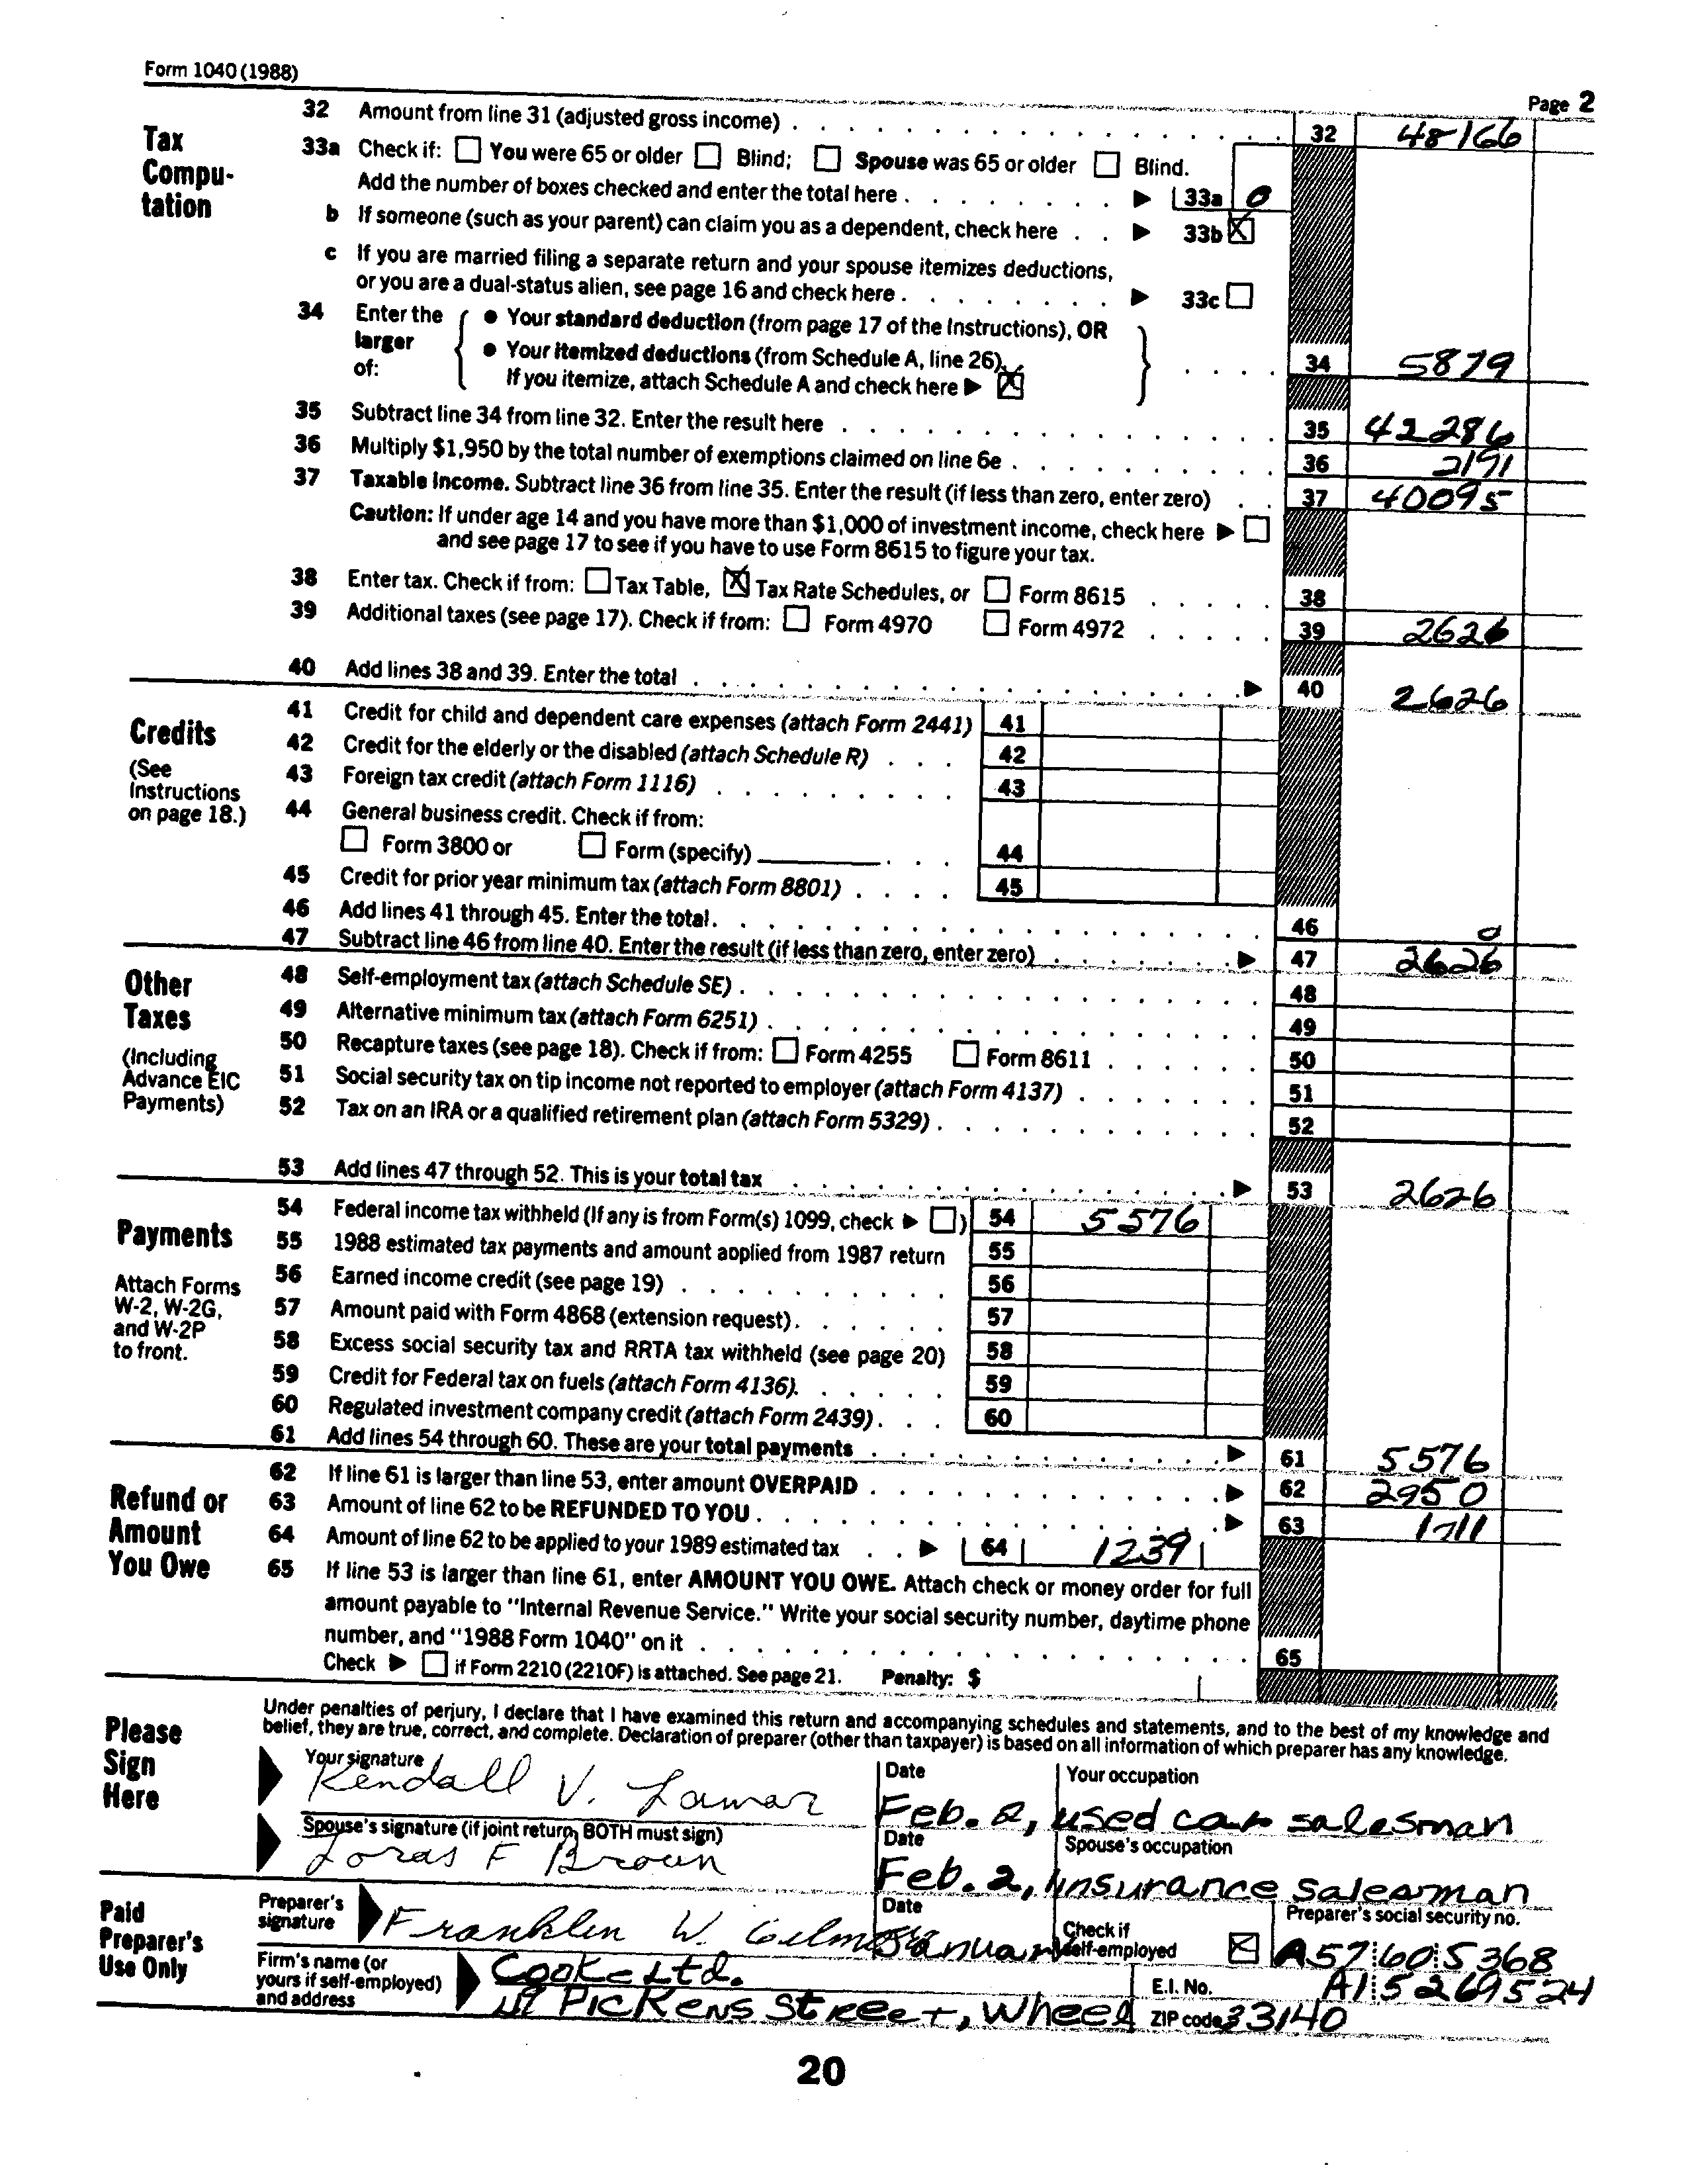 Form 1040 (1988)
Page 2
Tax Computation
32 Amount from line 31 (adjusted gross income) 32 48166
33a Check if: You were 65 or older Blind; Spouse was 65 or older Blind.
Add the number of boxes checked and enter the total here 33a 0
b If someone (such as your parent) can claim you as a dependent, check here 33b X
c If you are married filing a separate return and your spouse itemizes deductions,
or you are a dual-status alien, see page 16 and check here 33c
34 Enter the larger of:
• Your standard deduction (from page 17 of the Instructions), OR
• Your itemized deductions (from Schedule A, line 26).
If you itemize, attach Schedule A and check here X 34 5879
35 Subtract line 34 from line 32. Enter the result here 35 42286
36 Multiply $1,950 by the total number of exemptions claimed on line 6e 36 2191
37 Taxable income. Subtract line 36 from line 35. Enter the result (if less than zero, enter zero) 37 40095
Caution: If under age 14 and you have more than $1,000 of investment income, check here
and see page 17 to see if you have to use Form 8615 to figure your tax.
38 Enter tax. Check if from: Tax Table, X Tax Rate Schedules, or Form 8615 38
39 Additional taxes (see page 17). Check if from: Form 4970 Form 4972 39 2626
40 Add lines 38 and 39. Enter the total 40 2626
Credits
(See Instructions on page 18.)
41 Credit for child and dependent care expenses (attach Form 2441) 41
42 Credit for the elderly or the disabled (attach Schedule R) 42
43 Foreign tax credit (attach Form 1116) 43
44 General business credit. Check if from:
Form 3800 or Form (specify) 44
45 Credit for prior year minimum tax (attach Form 8801) 45
46 Add lines 41 through 45. Enter the total. 46 0
47 Subtract line 46 from line 40. Enter the result (if less than zero, enter zero) 47 2626
Other Taxes
(Including Advance EIC Payments)
48 Self-employment tax (attach Schedule SE) 48
49 Alternative minimum tax (attach Form 6251) 49
50 Recapture taxes (see page 18). Check if from: Form 4255 Form 8611 50
51 Social security tax on tip income not reported to employer (attach Form 4137) 51
52 Tax on an IRA or a qualified retirement plan (attach Form 5329) 52
53 Add lines 47 through 52. This is your total tax 53 2626
Payments
Attach Forms W-2, W-2G, and W-2P to front.
54 Federal income tax withheld (If any is from Form(s) 1099, check ) 54 5576
55 1988 estimated tax payments and amount applied from 1987 return 55
56 Earned income credit (see page 19) 56
57 Amount paid with Form 4868 (extension request) 57
58 Excess social security tax and RRTA tax withheld (see page 20) 58
59 Credit for Federal tax on fuels (attach Form 4136) 59
60 Regulated investment company credit (attach Form 2439) 60
61 Add lines 54 through 60. These are your total payments 61 5576
Refund or Amount You Owe
62 If line 61 is larger than line 53, enter amount OVERPAID 62 2950
63 Amount of line 62 to be REFUNDED TO YOU 63 1711
64 Amount of line 62 to be applied to your 1989 estimated tax 64 1239
65 If line 53 is larger than line 61, enter AMOUNT YOU OWE. Attach check or money order for full
amount payable to "Internal Revenue Service." Write your social security number, daytime phone
number, and "1988 Form 1040" on it 65
Check if Form 2210 (2210F) is attached. See page 21. Penalty: $
Please Sign Here
Under penalties of perjury, I declare that I have examined this return and accompanying schedules and statements, and to the best of my knowledge and
belief, they are true, correct, and complete. Declaration of preparer (other than taxpayer) is based on all information of which preparer has any knowledge.
Your signature Date Your occupation
Kendall V. Lamar Feb. 2, used car salesman
Spouse's signature (if joint return, BOTH must sign) Date Spouse's occupation
Loras F Brown Feb. 2, insurance salesman
Paid Preparer's Use Only
Preparer's signature Date Check if self-employed Preparer's social security no.
Franklin W. January X A57 60 5368
Firm's name (or yours if self-employed) and address E.I. No. ZIP code
Cooke Ltd. A1 5269524
Pickens Street, Wheel 33140
20